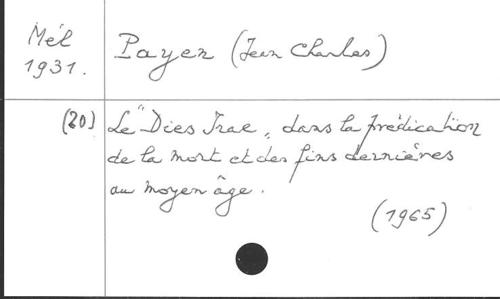 Mél
1931.
Payen (Jean Charles)
(20) Le "Dies Irae", dans la prédication
de la mort et des fins dernières
au moyen âge.
(1965)